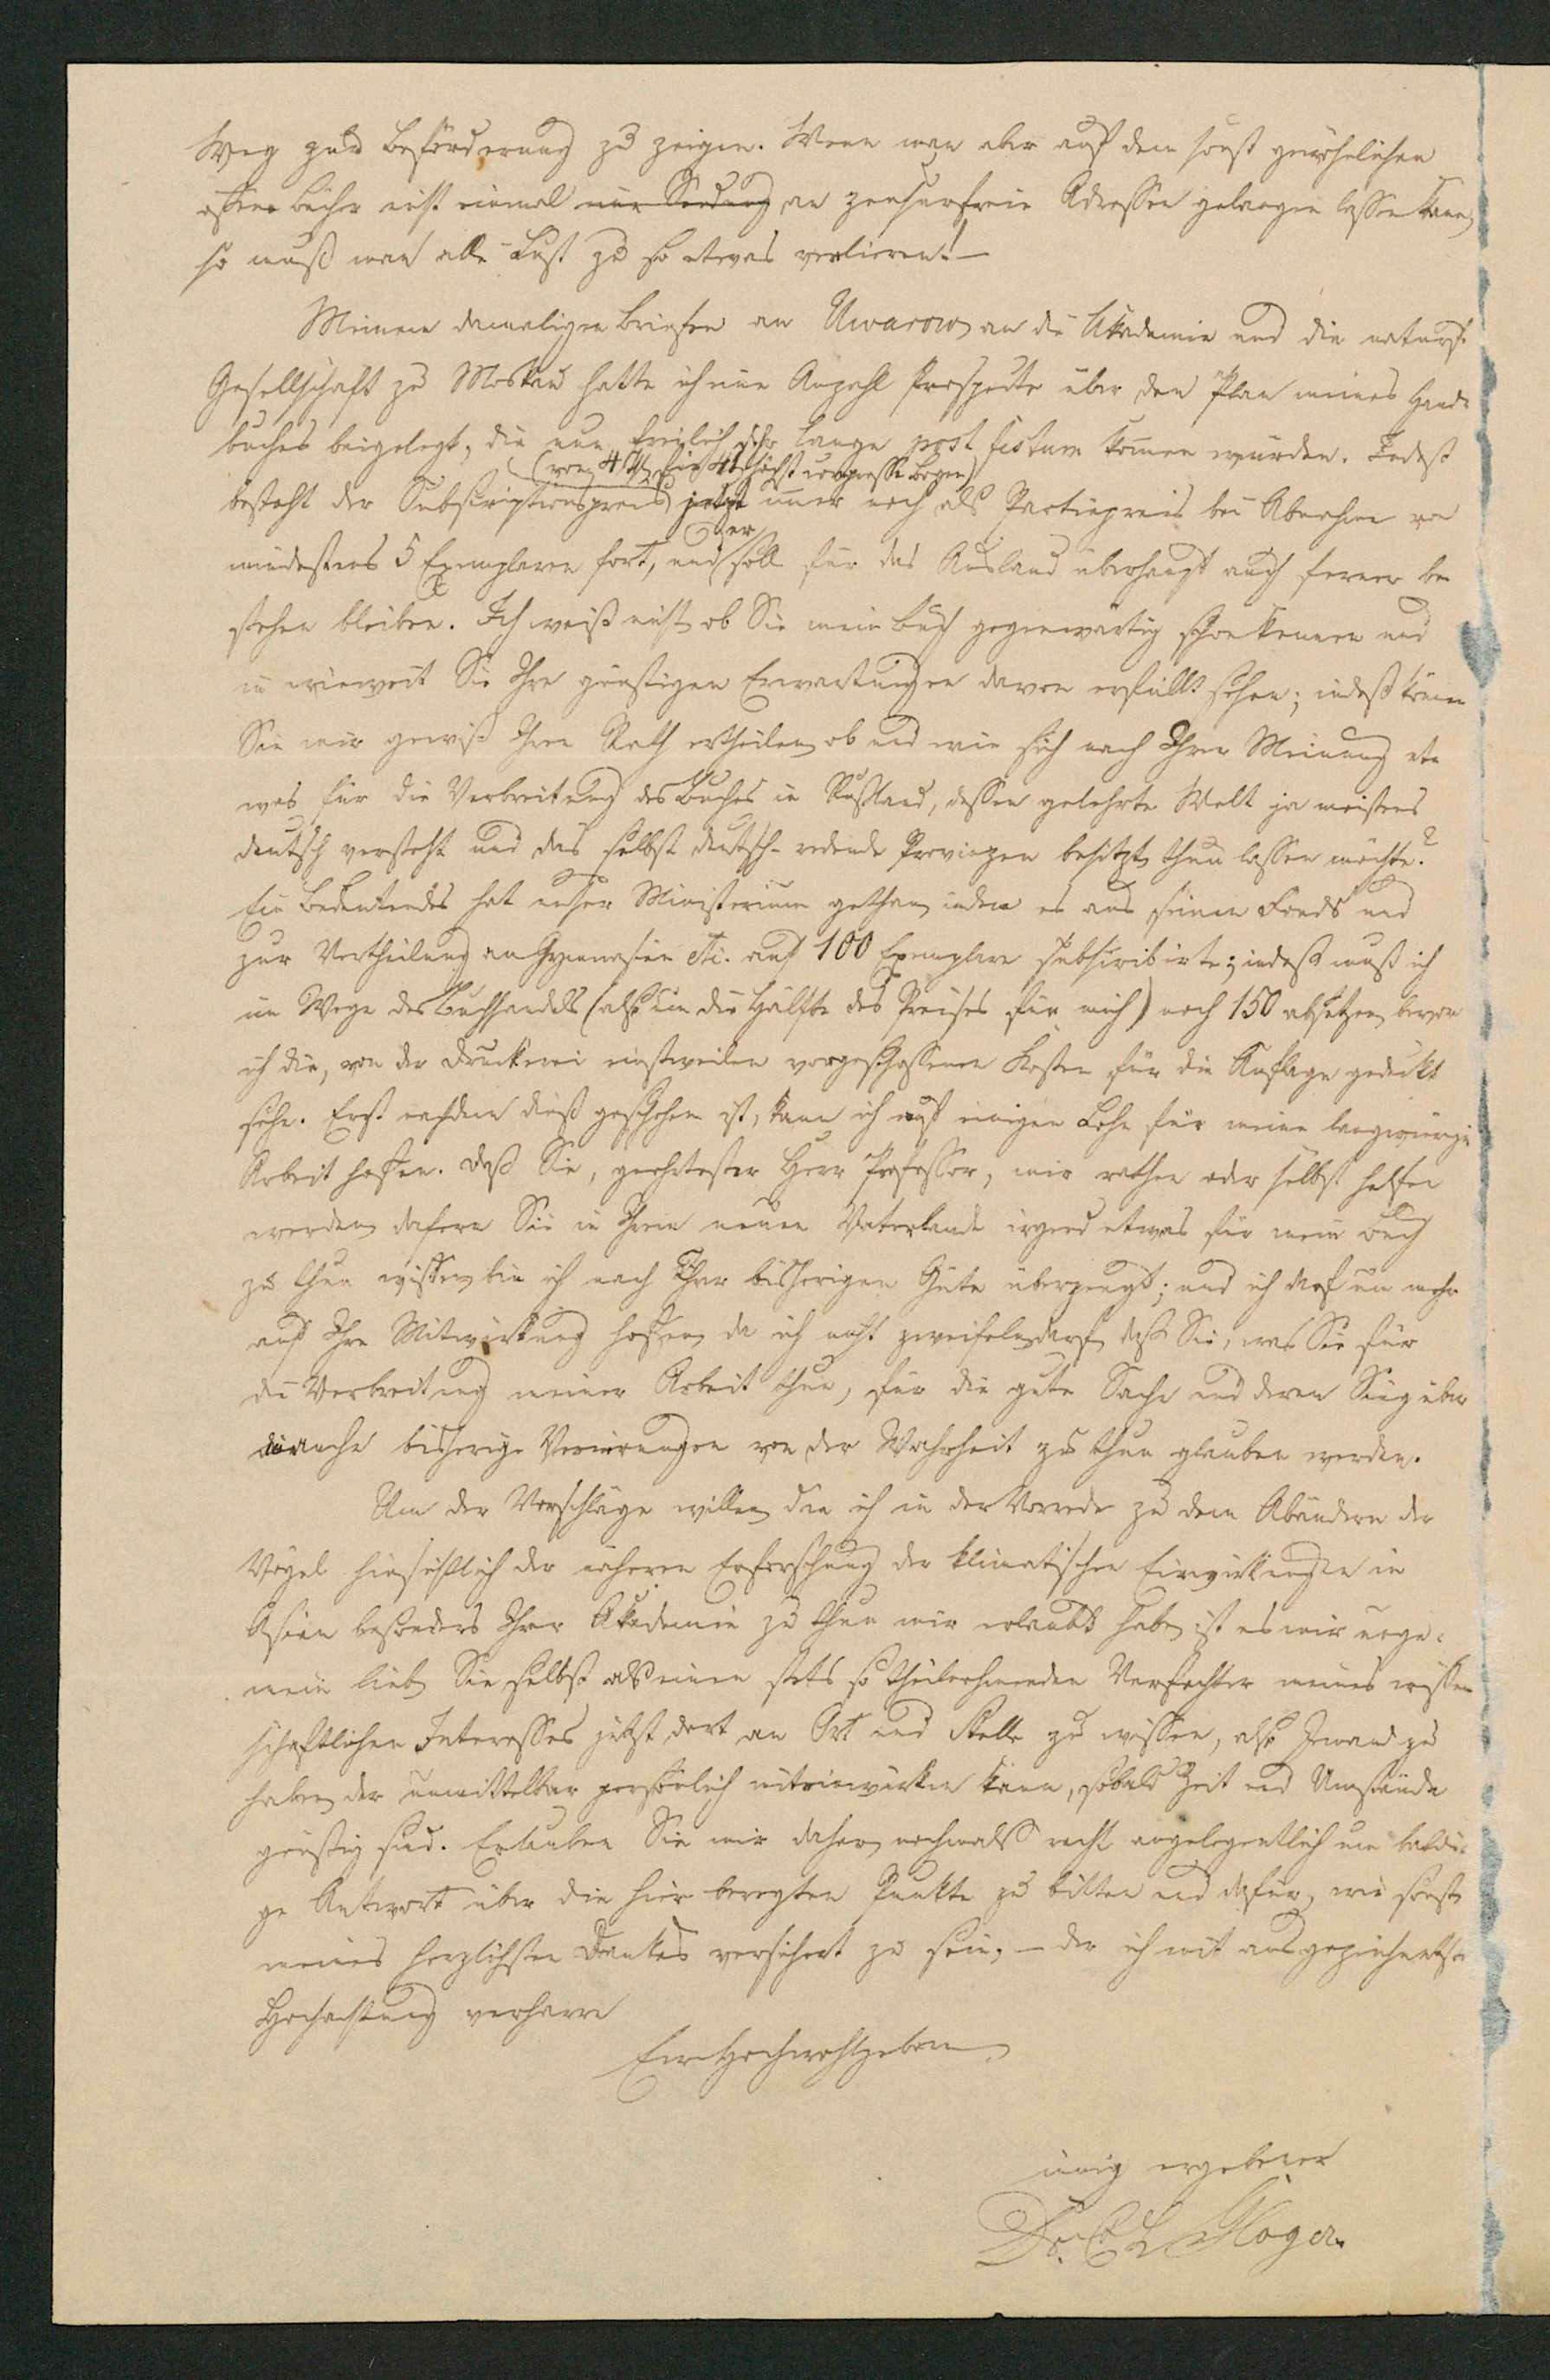 Weg zur Beförderung zu zeigen. Wenn man aber auf dem sonst gewöhnlichen
offene Bücher nicht einmal eine Sendung an zensurfreie Adressen gelangen lassen kann,
so muß man alle Lust zu so etwas verlieren! –
Meinen damaligen Briefen an Uwarow, an die Akademie und die naturf.
Gesellschaft zu Moskau hatte ich eine Anzahl Prospecte über den Plan meines Hand-
buches beigelegt, die nun freilich sehr lange post festum kommen würden. Indeß
(von 4 für 41 höchst compresse Bogen)
besteht der Subscriptionspreis jetzt immer noch als Partiepreis bei Abnahme von
er
mindestens 5 Exemplaren fort, und soll für das Ausland überhaupt auch ferner be-
stehen bleiben. Ich weiß nicht, ob Sie mein Buch gegenwärtig schon kennen und
in wieweit Sie Ihre günstigen Erwartungen davon erfüllt sehen; indeß können
Sie mir gewiß Ihren Rath ertheilen, ob und wie sich nach Ihrer Meinung et-
was für die Verbreitung des Buches in Rußland, dessen gelehrte Welt ja meistens
deutsch versteht und das selbst deutsch-redende Provinzen besitzt, thun lassen möchte?
Ein Bedeutendes hat unser Ministerium gethan, indem es aus seinem Fonds und
zur Vertheilung an Gymnasien etc. auf 100 Exemplare subscribirte; indeß muß ich
im Wege des Buchhandels (also um die Hälfte des Preises für mich) noch 150 absetzen, bevor
ich die, von der Druckerei einstweilen vorgeschossenen Kosten für die Auflage gedeckt
sehe. Erst nachdem dieß geschehen ist, kann ich auf einigen Lohn für meine langwierige
Arbeit hoffen. Daß Sie, geehrtester Herr Professor, mir rathen oder selbst helfen
werden, dafern Sie in Ihrem neuen Vaterlande irgend etwas für mein Buch
zu thun wissen, bin ich nach Ihrer bisherigen Güte überzeugt; und ich darf um mehr
auf Ihre Mitwirkung hoffen, da ich nicht zweifeln darf, daß Sie, was Sie für
die Verbreitung meiner Arbeit thun, für die gute Sache und deren Sieg über
manche bisherige Verirrungen von der Wahrheit zu thun glauben werden.
Um der Vorschläge willen, die ich in der Vorrede zu dem Abändern der
Vögel hinsichtlich der näheren Erforschung der klimatischen Einwirkungen in
Asien besonders Ihrer Akademie zu thun mir erlaubt habe, ist es mir unge-
mein lieb, Sie selbst als einen stets so theilnehmenden Verfechter meines wissen-
schaftlichen Interesses jetzt dort an Ort und Stelle zu wissen, also Jemand zu
haben, der unmittelbar persönlich miteinwirken kann, sobald Zeit und Umstände
günstig sind. Erlauben Sie mir daher, nochmals recht angelegentlich um baldi-
ge Antwort über die hier beregten Punkte zu bitten und dafür, wie sonst,
meines herzlichsten Dankes versichert zu sein; – der ich mit ausgezeichneter
Hochachtung verharre
Ew. Hochwohlgeboren
innig ergebener
Dr. C L Gloger.